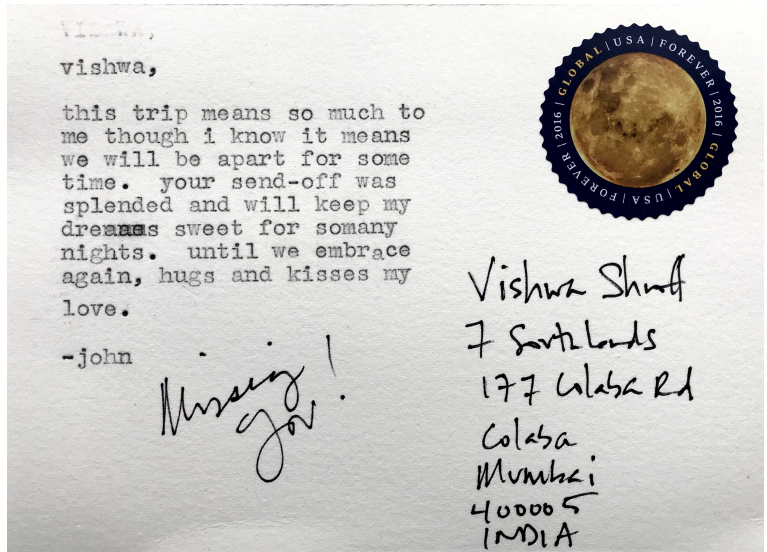 vishwa,
this trip means so much to
me though i know it means
we will be apart for some
time. your send-off was
splended and will keep my
dreams sweet for somany
nights. until we embrace
again, hugs and kisses my
love.
-john
Missing
you!
GLOBAL | USA | FOREVER | 2016 | GLOBAL | USA | FOREVER | 2016 |
Vishwa Shroff
7 Southlands
177 Colaba Rd
Colaba
Mumbai
400005
INDIA